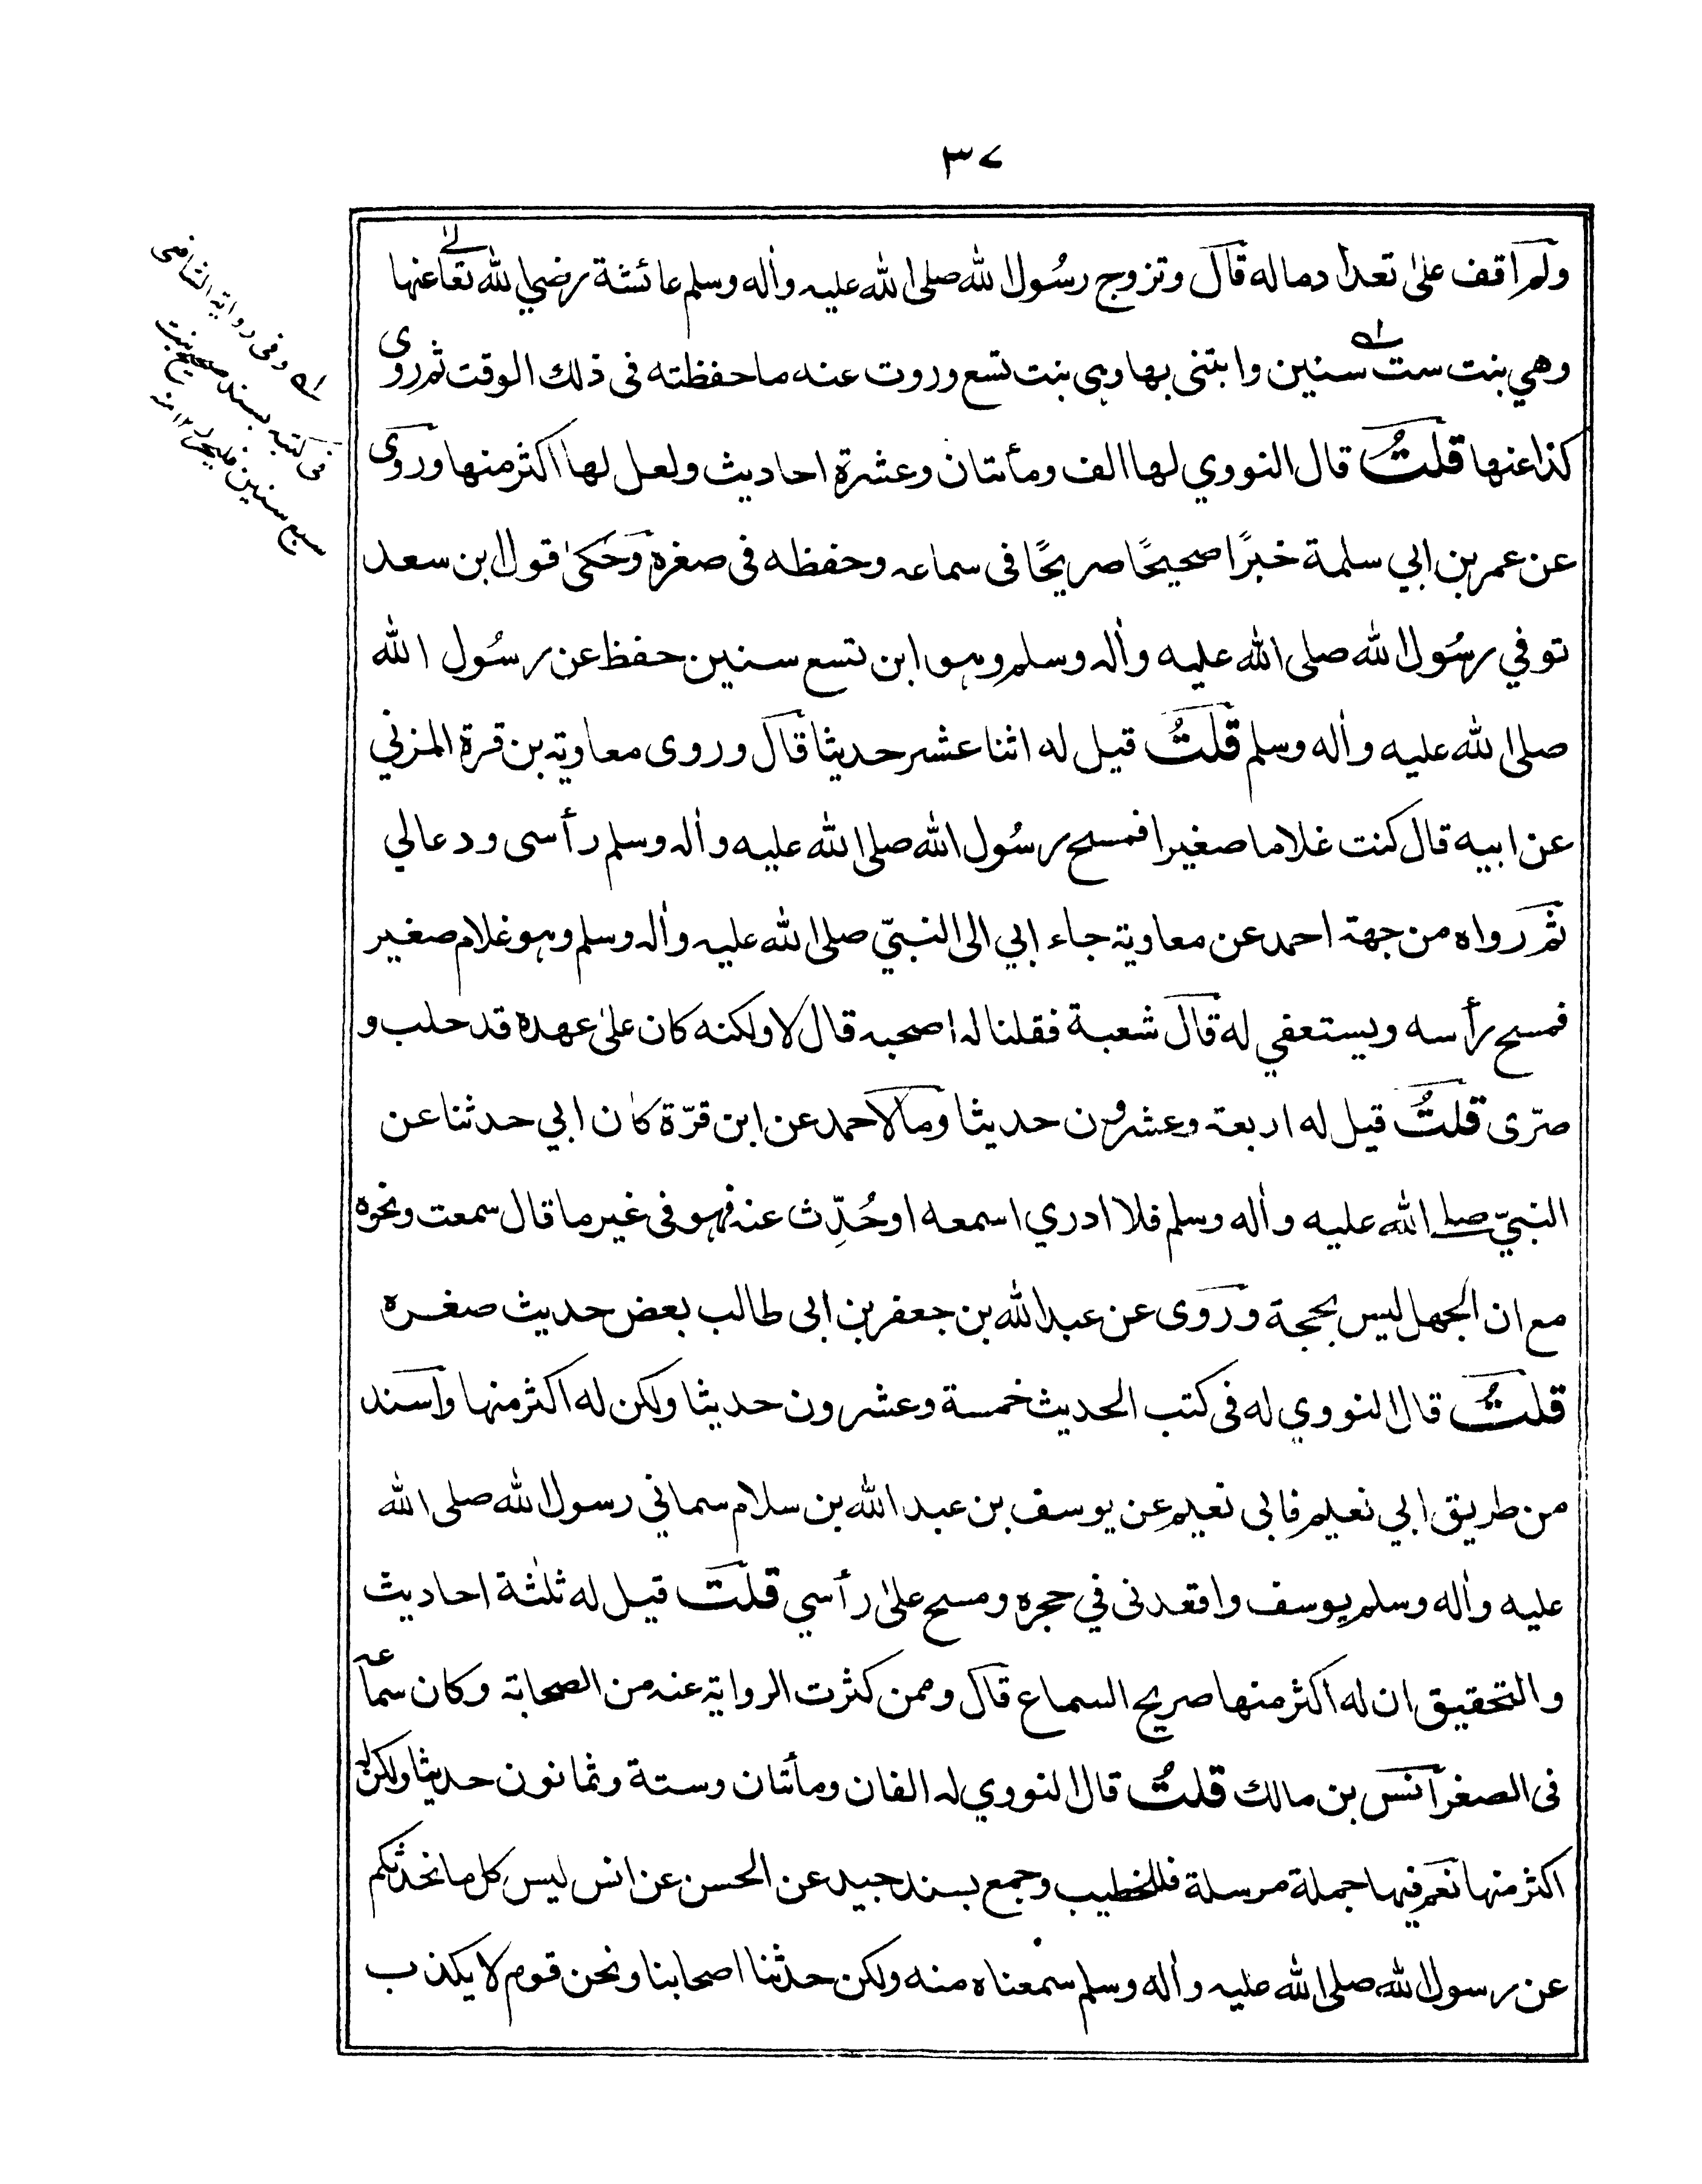 ٣٧
ولم اقف على تعداد ماله قال وتزوج رسُول الله صلى الله عليه وأله وسلم عائشة رضي الله تعالى عنها
وهي بنت ست سنين وابتنى بها وهي بنت تسع وروت عنه ما حفظته فى ذلك الوقت ثم روى
كذا عنها قلتُ قال النووي لها الف ومأتان وعشرة احاديث ولعل لها اكثر منها وروى
عن عمر بن ابي سلمة خبرًا صحيحًا صريحًا فى سماعه وحفظه فى صغره وحكىٰ قول ابن سعد
توفي رسُول الله صلى الله عليه وأله وسلم وهو ابن تسع سنين حفظ عن رسُول الله
صلى الله عليه وأله وسلم قلتُ قيل له اثنا عشر حديثا قال وروى معاوية بن قرة المزني
عن ابيه قال كنت غلاما صغيرا فمسح رسُول الله صلى الله عليه وأله وسلم رأسى ودعا لي
ثم رواه من جهة احمد عن معاوية جاء ابي الى النبيّ صلى الله عليه وأله وسلم وهو غلام صغير
فمسح رأسه ويستعفي له قال شعبة فقلنا له اصحبه قال لا ولكنه كان علىٰ عهده قد حلب و
صرّى قلتُ قيل له اربعة وعشرون حديثا وما لاحمد عن ابن قرّة كان ابي حدثنا عن
النبيّ صلى الله عليه وأله وسلم فلا ادري اسمعه او حُدِّث عنه فهو فى غير ما قال سمعت ونحوه
مع ان الجهل ليس بحجة وروى عن عبد الله بن جعفر بن ابى طالب بعض حديث صغره
قلتُ قال النووي له فى كتب الحديث خمسة وعشرون حديثا ولكن له اكثر منها واسند
من طريق ابي نعيم فابى نعيم عن يوسف بن عبد الله بن سلام سماني رسول الله صلى الله
عليه وأله وسلم يوسف واقعدنى في حجره ومسح علىٰ رأسي قلتُ قيل له ثلٰثة احاديث
والتحقيق ان له اكثر منها صريح السماع قال وممن كثرت الرواية عنه من الصحابة وكان سماعه
فى الصغر انس بن مالك قلتُ قال النووي له الفان ومأتان وستة وثمانون حديثا ولكن له
اكثر منها نعم فيها جملة مرسلة فللخطيب وجمع بسند جيد عن الحسن عن انس ليس كل ما نحدثكم
عن رسول الله صلى الله عليه وأله وسلم سمعناه منه ولكن حدثنا اصحابنا ونحن قوم لا يكذب
وفى رواية الشافعى
فى كتبه بسند صحيح بنت
سبع سنين ١٢ منه